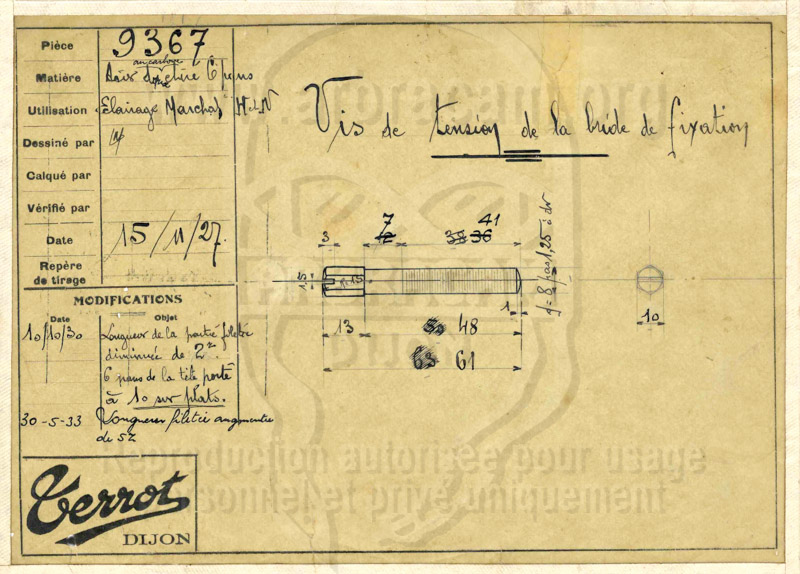 Pièce 9367
Matière Six pans
Utilisation Eclairage Marchal H-d-N
Dessiné par
Calqué par
Vérifié par
Date 15/11/27.
Repère
de tirage
MODIFICATIONS
Date Objet
10/10/30 Longueur de la partie filetée
diminuée de 2
6 pans de la tête porté
à 10 sur plats.
30-5-33 Longueur filetée augmentée
de 5
Terrot
DIJON
Vis de tension de la bride de fixation
7 41
3 12 38 36
1,25
f=8 pas 1,25 à dr
1
13 50 48
63 61
10
Reproduction autorisée pour usage
personnel et privé uniquement